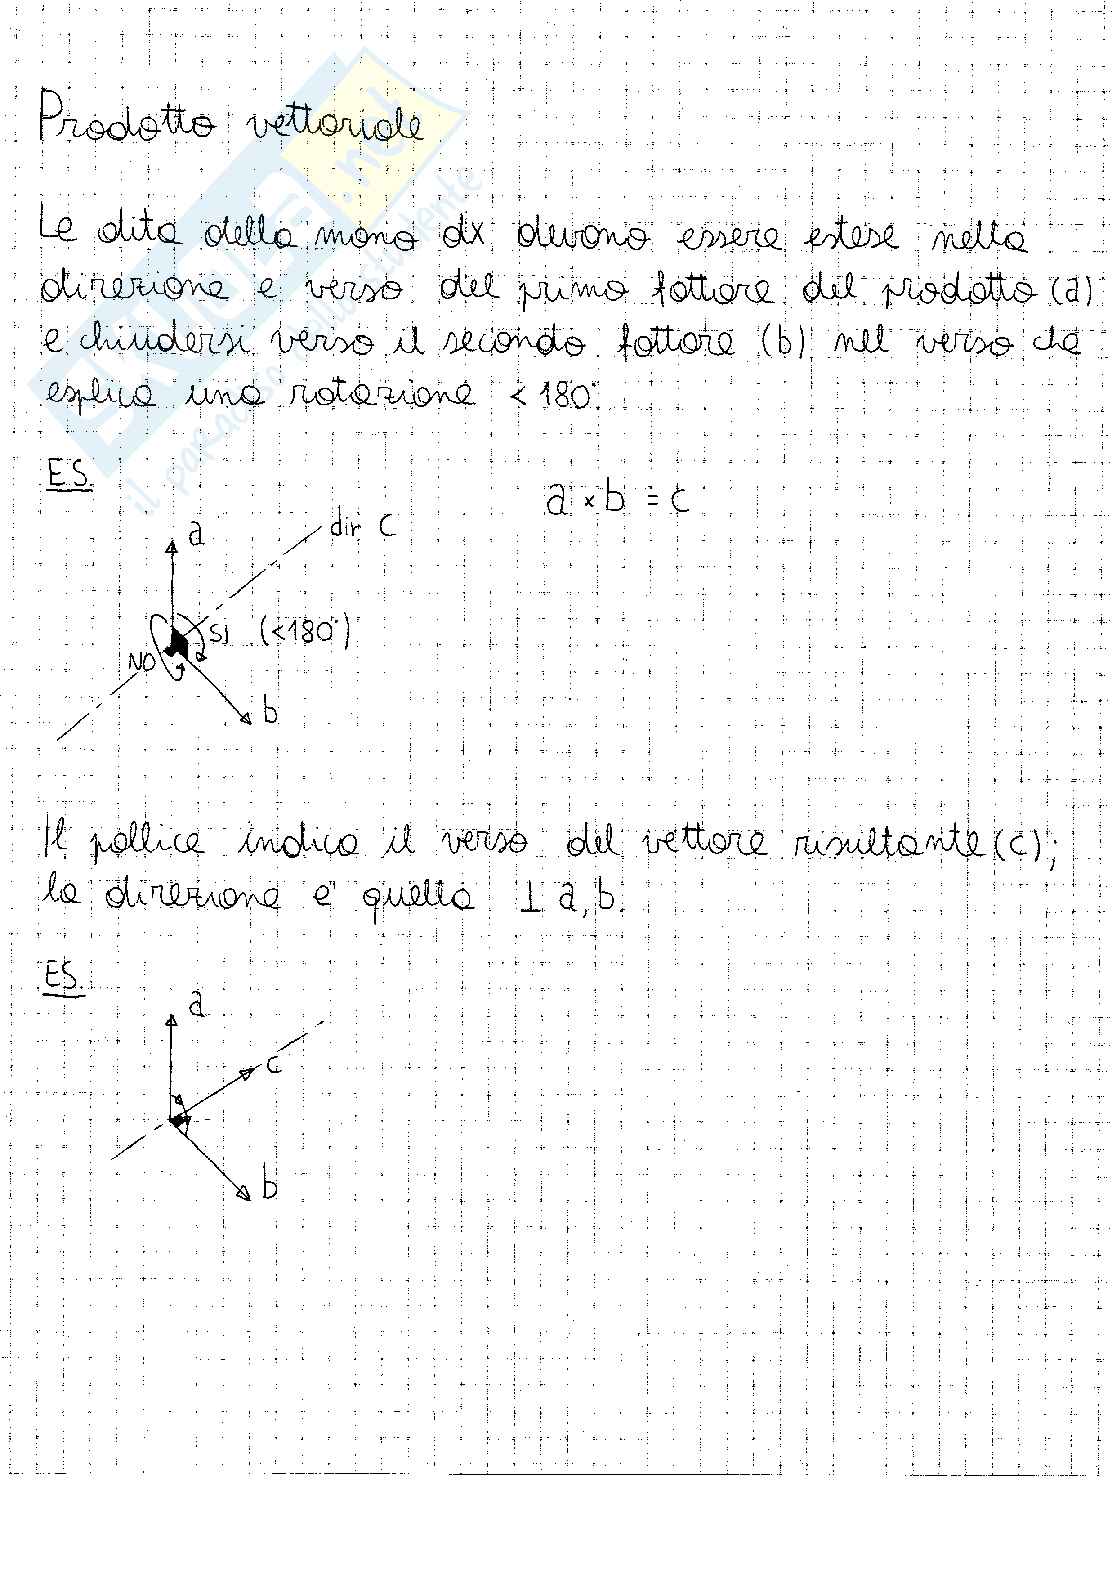 Prodotto vettoriale
Le dita della mano dx devono essere estese nella
direzione e verso del primo fattore del prodotto (a)
e chiudersi verso il secondo fattore (b) nel verso che
esplica una rotazione < 180°.
ES.
a × b = c
a
dir c
SI (<180°)
NO
b
Il pollice indica il verso del vettore risultante (c);
la direzione è quella ⊥ a, b.
ES.
a
c
b